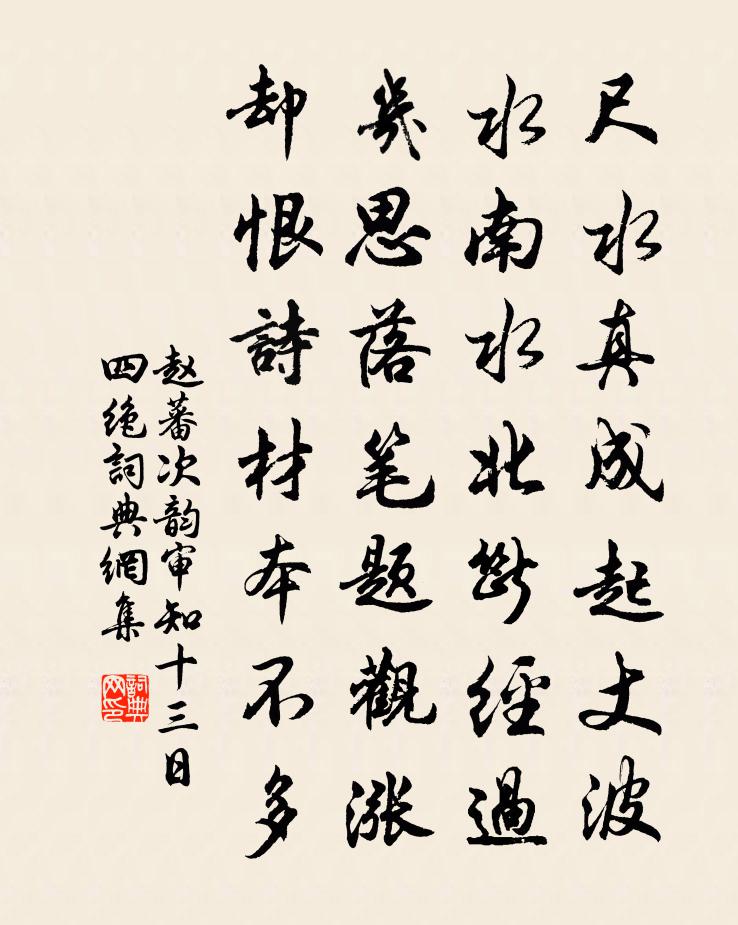 尺水真成起丈波
水南水北斷經過
幾思落笔题觀漲
却恨詩材本不多
赵蕃次韵审知十三日
四绝詞典網集
詞典
网印